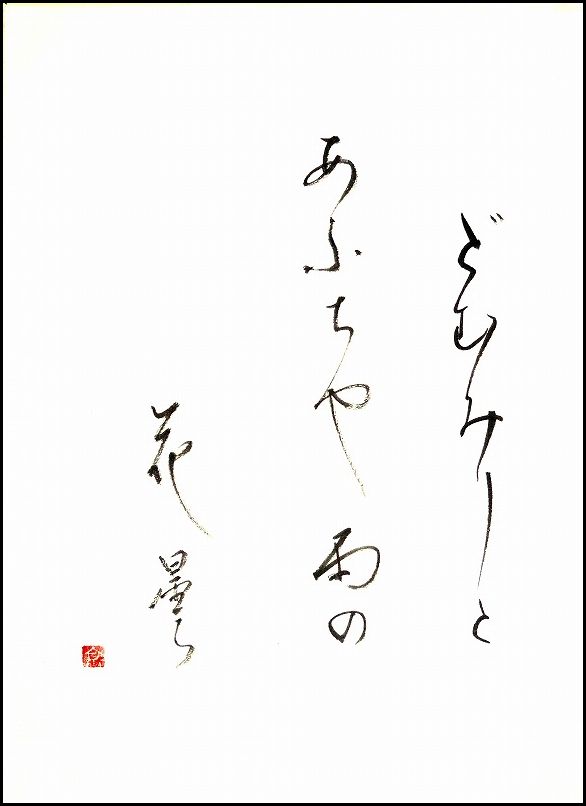 どむみりと
あふちや雨の
花曇